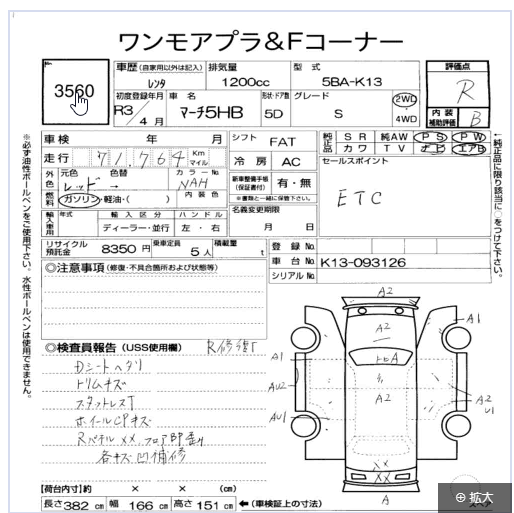 ワンモアプラ&Fコーナー
3560
車歴(自家用以外は記入) 排気量 型式
レンタ 1200cc 5BA-K13
初度登録年月 車名 形状・ドア数 グレード
R3/4月 マーチ5HB 5D S 2WD 4WD
評価点
R
内装補助評価 B
※必ず油性ボールペンをご使用下さい。水性ボールペンは使用できません。
車検 年 月
走行 71,764 Km マイル
外色 元色 色替 カラーNo
レッド → NAH
燃料 ガソリン・軽油・( ) 内装色
輸入車用 年式 輸入区分 ハンドル
ディーラー・並行 左・右
リサイクル預託金 8350円 乗車定員 5人 積載量 t
シフト FAT
冷房 AC
新車整備手帳(保証書付) 有・無
※書類と一緒に保管下さい。
名義変更期限
月 日
純正品 SR 純AW PS PW
カワ TV ナビ エアB
セールスポイント
ETC
←純正品に限り該当に○をつけて下さい。
登録No.
車台No. K13-093126
シリアルNo.
◎注意事項(修復・不具合箇所および状態等)
◎検査員報告(USS使用欄) R修復T
Dシートヘタリ
トリムキズ
スタットレスT
ホイールCPキズ
Rパネル××、フロア即重り
各キズ凹補修
A2
A2
トビA
A2
A1
A1
AU2
AU1
A2
U1
××
××
A
【荷台内寸】約 × × (cm)
長さ382cm 幅166cm 高さ151cm ←(車検証上の寸法)
スペア
拡大